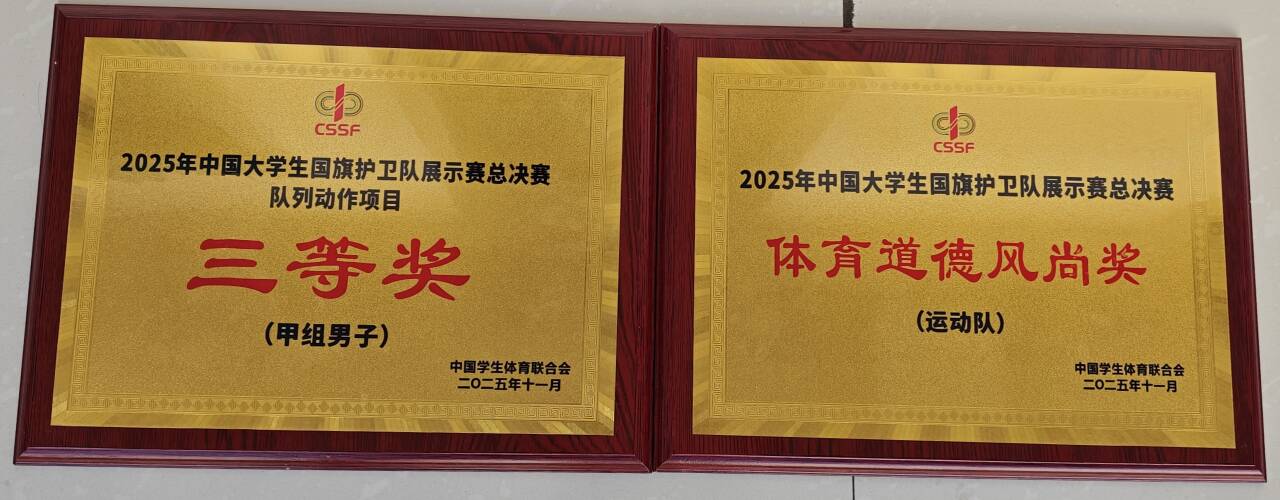 CSSF
2025年中国大学生国旗护卫队展示赛总决赛
队列动作项目
三等奖
（甲组男子）
中国学生体育联合会
二〇二五年十一月
CSSF
2025年中国大学生国旗护卫队展示赛总决赛
体育道德风尚奖
（运动队）
中国学生体育联合会
二〇二五年十一月